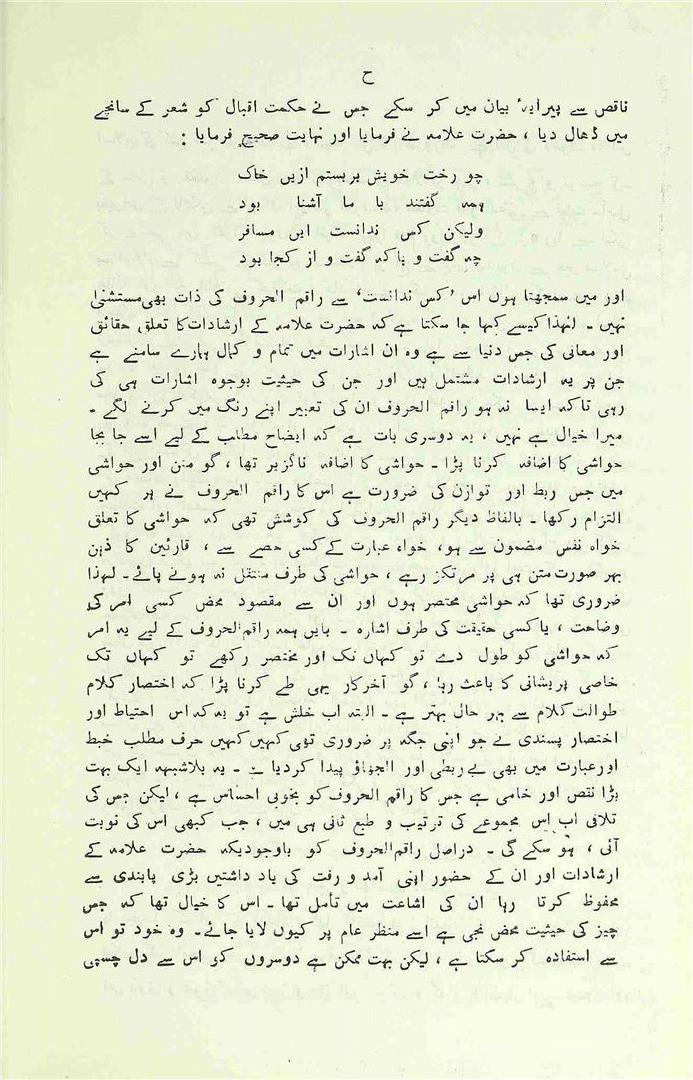 ح
ناقص سے پیرایۂ بیان میں کر سکے جس نے حکمت اقبال کو شعر کے سانچے
میں ڈھال دیا ، حضرت علامہ نے فرمایا اور نہایت صحیح فرمایا :
چو رخت خویش بربستم ازیں خاک
ہمہ گفتند با ما آشنا بود
ولیکن کس ندانست ایں مسافر
چہ گفت و باکہ گفت و از کجا بود
اور میں سمجھتا ہوں اس ’کس ندانست‘ سے راقم الحروف کی ذات بھی مستثنیٰ
نہیں ۔ لہٰذا کیسے کہا جا سکتا ہے کہ حضرت علامہ کے ارشادات کا تعلق حقائق
اور معانی کی جس دنیا سے ہے وہ ان اشارات میں تمام و کمال ہمارے سامنے ہے
جن پر یہ ارشادات مشتمل ہیں اور جن کی حیثیت بوجوہ اشارات ہی کی
رہی تاکہ ایسا نہ ہو راقم الحروف ان کی تعبیر اپنے رنگ میں کرنے لگے ۔
میرا خیال ہے نہیں ، یہ دوسری بات ہے کہ ایضاح مطلب کے لیے اسے جا بجا
حواشی کا اضافہ کرنا پڑا ۔ حواشی کا اضافہ ناگزیر تھا ، گو متن اور حواشی
میں جس ربط اور توازن کی ضرورت ہے اس کا راقم الحروف نے ہر کہیں
التزام رکھا ۔ بالفاظ دیگر راقم الحروف کی کوشش تھی کہ حواشی کا تعلق
خواہ نفس مضمون سے ہو ، خواہ عبارت کے کسی حصے سے ، قارئین کا ذہن
بہر صورت متن ہی پر مرتکز رہے ، حواشی کی طرف منتقل نہ ہونے پائے ۔ لہٰذا
ضروری تھا کہ حواشی مختصر ہوں اور ان سے مقصود محض کسی امر کی
وضاحت ، یا کسی حقیقت کی طرف اشارہ ۔ بایں ہمہ راقم الحروف کے لیے یہ امر
کہ حواشی کو طول دے تو کہاں تک اور مختصر رکھے تو کہاں تک
خاصی پریشانی کا باعث رہا ، گو آخرکار یہی طے کرنا پڑا کہ اختصار کلام
طوالت کلام سے بہر حال بہتر ہے ۔ البتہ اب خلش ہے تو یہ کہ اس احتیاط اور
اختصار پسندی نے جو اپنی جگہ پر ضروری تھی کہیں کہیں حرف مطلب خبط
اور عبارت میں بھی بے ربطی اور الجھاؤ پیدا کر دیا ہے ۔ یہ بلاشبہ ایک بہت
بڑا نقص اور خامی ہے جس کا راقم الحروف کو بخوبی احساس ہے ، لیکن جس کی
تلافی اب اس مجموعے کی ترتیب و طبع ثانی ہی میں ، جب کبھی اس کی نوبت
آئی ، ہو سکے گی ۔ دراصل راقم الحروف کو باوجودیکہ حضرت علامہ کے
ارشادات اور ان کے حضور اپنی آمد و رفت کی یاد داشتیں بڑی پابندی سے
محفوظ کرتا رہا ان کی اشاعت میں تأمل تھا ۔ اس کا خیال تھا کہ جس
چیز کی حیثیت محض نجی ہے اسے منظر عام پر کیوں لایا جائے ۔ وہ خود تو اس
سے استفادہ کر سکتا ہے ، لیکن بہت ممکن ہے دوسروں کو اس سے دل چسپی